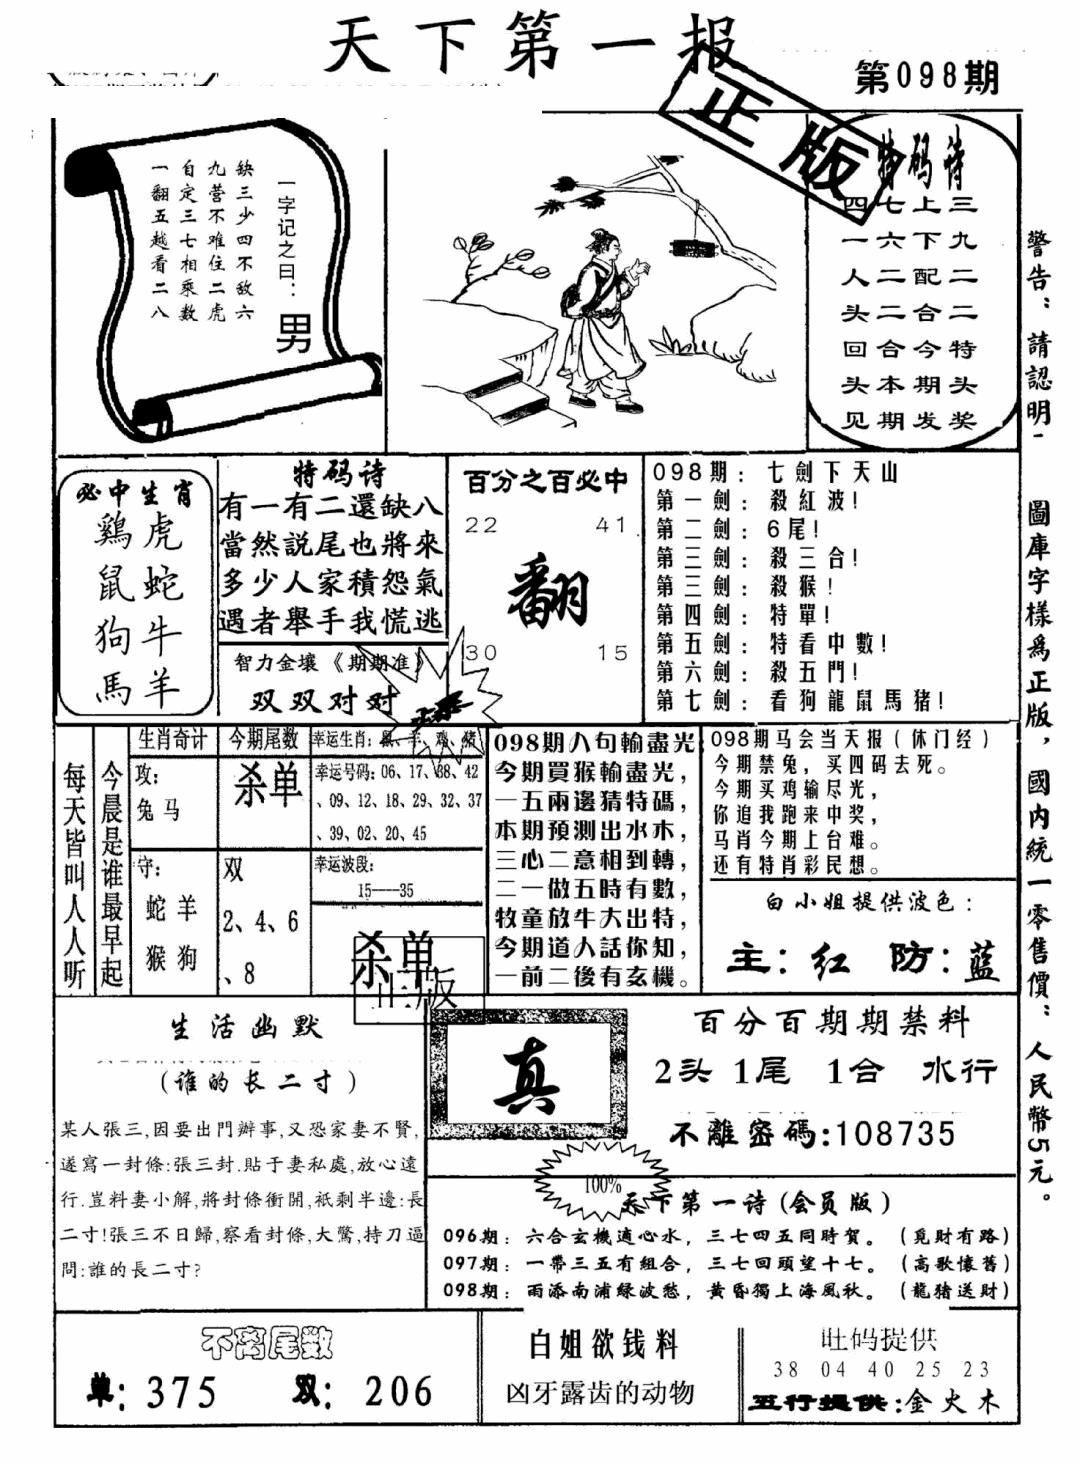 天下第一报
第098期
正版
一字记之曰：
男
缺三少四不敌六
九营不难住二虎
自定三七相乘数
一翻五越看二八
特码诗
三九二二特头奖
上下配合今期发
七六二二合本期
四一人头回头见
警告：請認明
圖庫字樣爲正版，國内統一零售價：人民幣5元。
必中生肖
鷄虎
鼠蛇
狗牛
馬羊
特码诗
有一有二還缺八
當然説尾也將來
多少人家積怨氣
遇者舉手我慌逃
智力金壤《期期准》
双双对对
百分之百必中
22 41
翻
30 15
098期：七劍下天山
第一劍：殺紅波！
第二劍：6尾！
第三劍：殺三合！
第三劍：殺猴！
第四劍：特單！
第五劍：特看中數！
第六劍：殺五門！
第七劍：看狗龍鼠馬猪！
每天皆叫人人听
今晨是谁最早起
生肖奇计
攻：
兔马
守：
蛇羊
猴狗
今期尾数
杀单
双
2、4、6
、8
幸运生肖：鼠、羊、鸡、猪
幸运号码：06、17、38、42
、09、12、18、29、32、37
、39、02、20、45
幸运波段：
15—35
杀单
正版
098期八句輸盡光
今期買猴輸盡光，
一五兩邊猜特碼，
本期預測出水木，
三心二意相到轉，
二一做五時有數，
牧童放牛大出特，
今期道人話你知，
一前二後有玄機。
098期马会当天报（休门经）
今期禁兔，买四码去死。
今期买鸡输尽光，
你追我跑来中奖，
马肖今期上台难。
还有特肖彩民想。
白小姐提供波色：
主：红 防：蓝
生活幽默
（谁的长二寸）
某人張三,因要出門辦事,又恐家妻不賢,
遂寫一封條:張三封.貼于妻私處,放心遠
行.豈料妻小解,將封條衝開,衹剩半邊:長
二寸!張三不日歸,察看封條,大驚,持刀逼
問:誰的長二寸?
真
百分百期期禁料
2头 1尾 1合 水行
不離密碼:108735
100%
天下第一诗(会员版)
096期：六合玄機適心水，三七四五同時賀。（覓財有路）
097期：一帶三五有組合，三七回頭望十七。（高歌懷舊）
098期：雨添南浦緑波愁，黄昏獨上海風秋。（龍猪送財）
不离尾数
单：375 双：206
白姐欲钱料
凶牙露齿的动物
旺码提供
38 04 40 25 23
五行提供:金火木